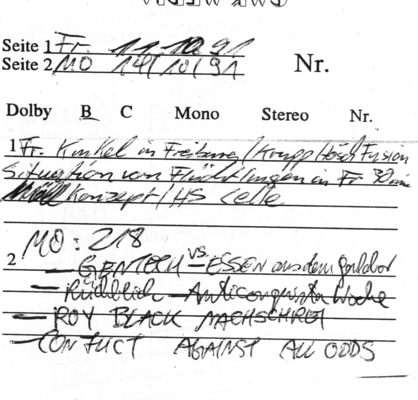 Seite 1 Fr. 11.10.91
Seite 2 MO 14/10/91
Nr.
Dolby B C Mono Stereo Nr.
1 Fr. Kinkel in Freiburg / Krupp Hösch Fusion
Situation von Flüchtlingen in Fr 30min
Müll Konzept / HS Celle
MO: 218
2 – GENTECH vs. ESSEN aus dem
– Rückblick Anticonquista Woche
– ROY BLACK NACHSCHREI
– CONFLICT AGAINST ALL ODDS